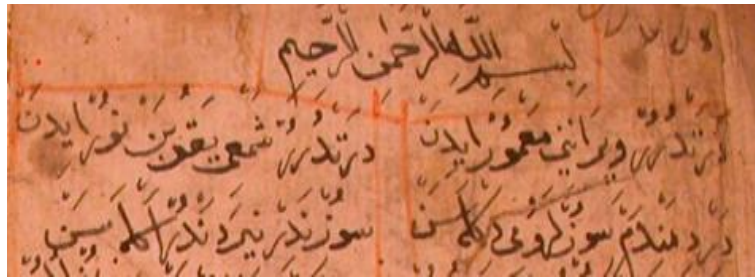 بِسْمِ اللّٰهِ الرَّحْمٰنِ الرَّحِيمِ
دَرتدُرُرْ ويرَانِيى مَعمُورْ ايدَنْ دَرتدُرُرْ شمعى يقوبَنْ نُورْ ايدَنْ
دَردمندَمْ سوزلرومى دكله سَنْ سوُزندَرْ نيردندُرْ اكله سَنْ